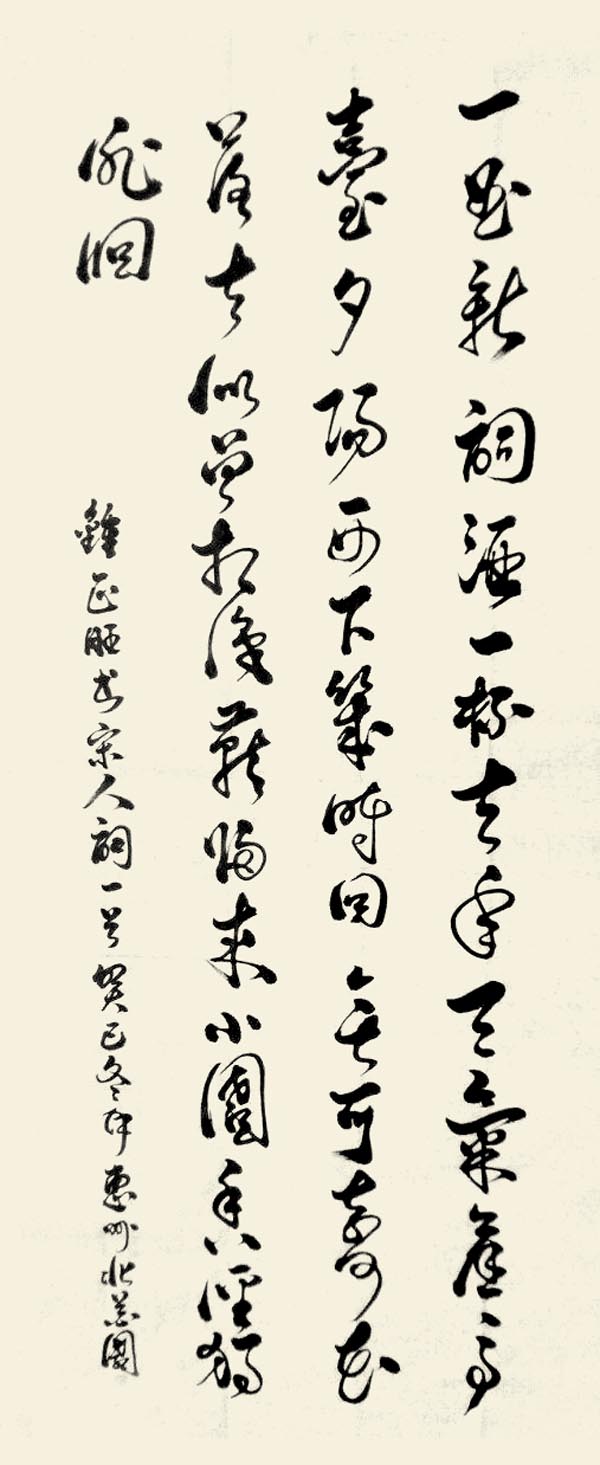 一曲新詞酒一杯去年天氣舊亭
臺夕陽西下幾時回無可奈何花
落去似曾相識燕歸來小園香徑獨
徘徊
鍾正旺书宋人詞一首癸巳冬惠州北園